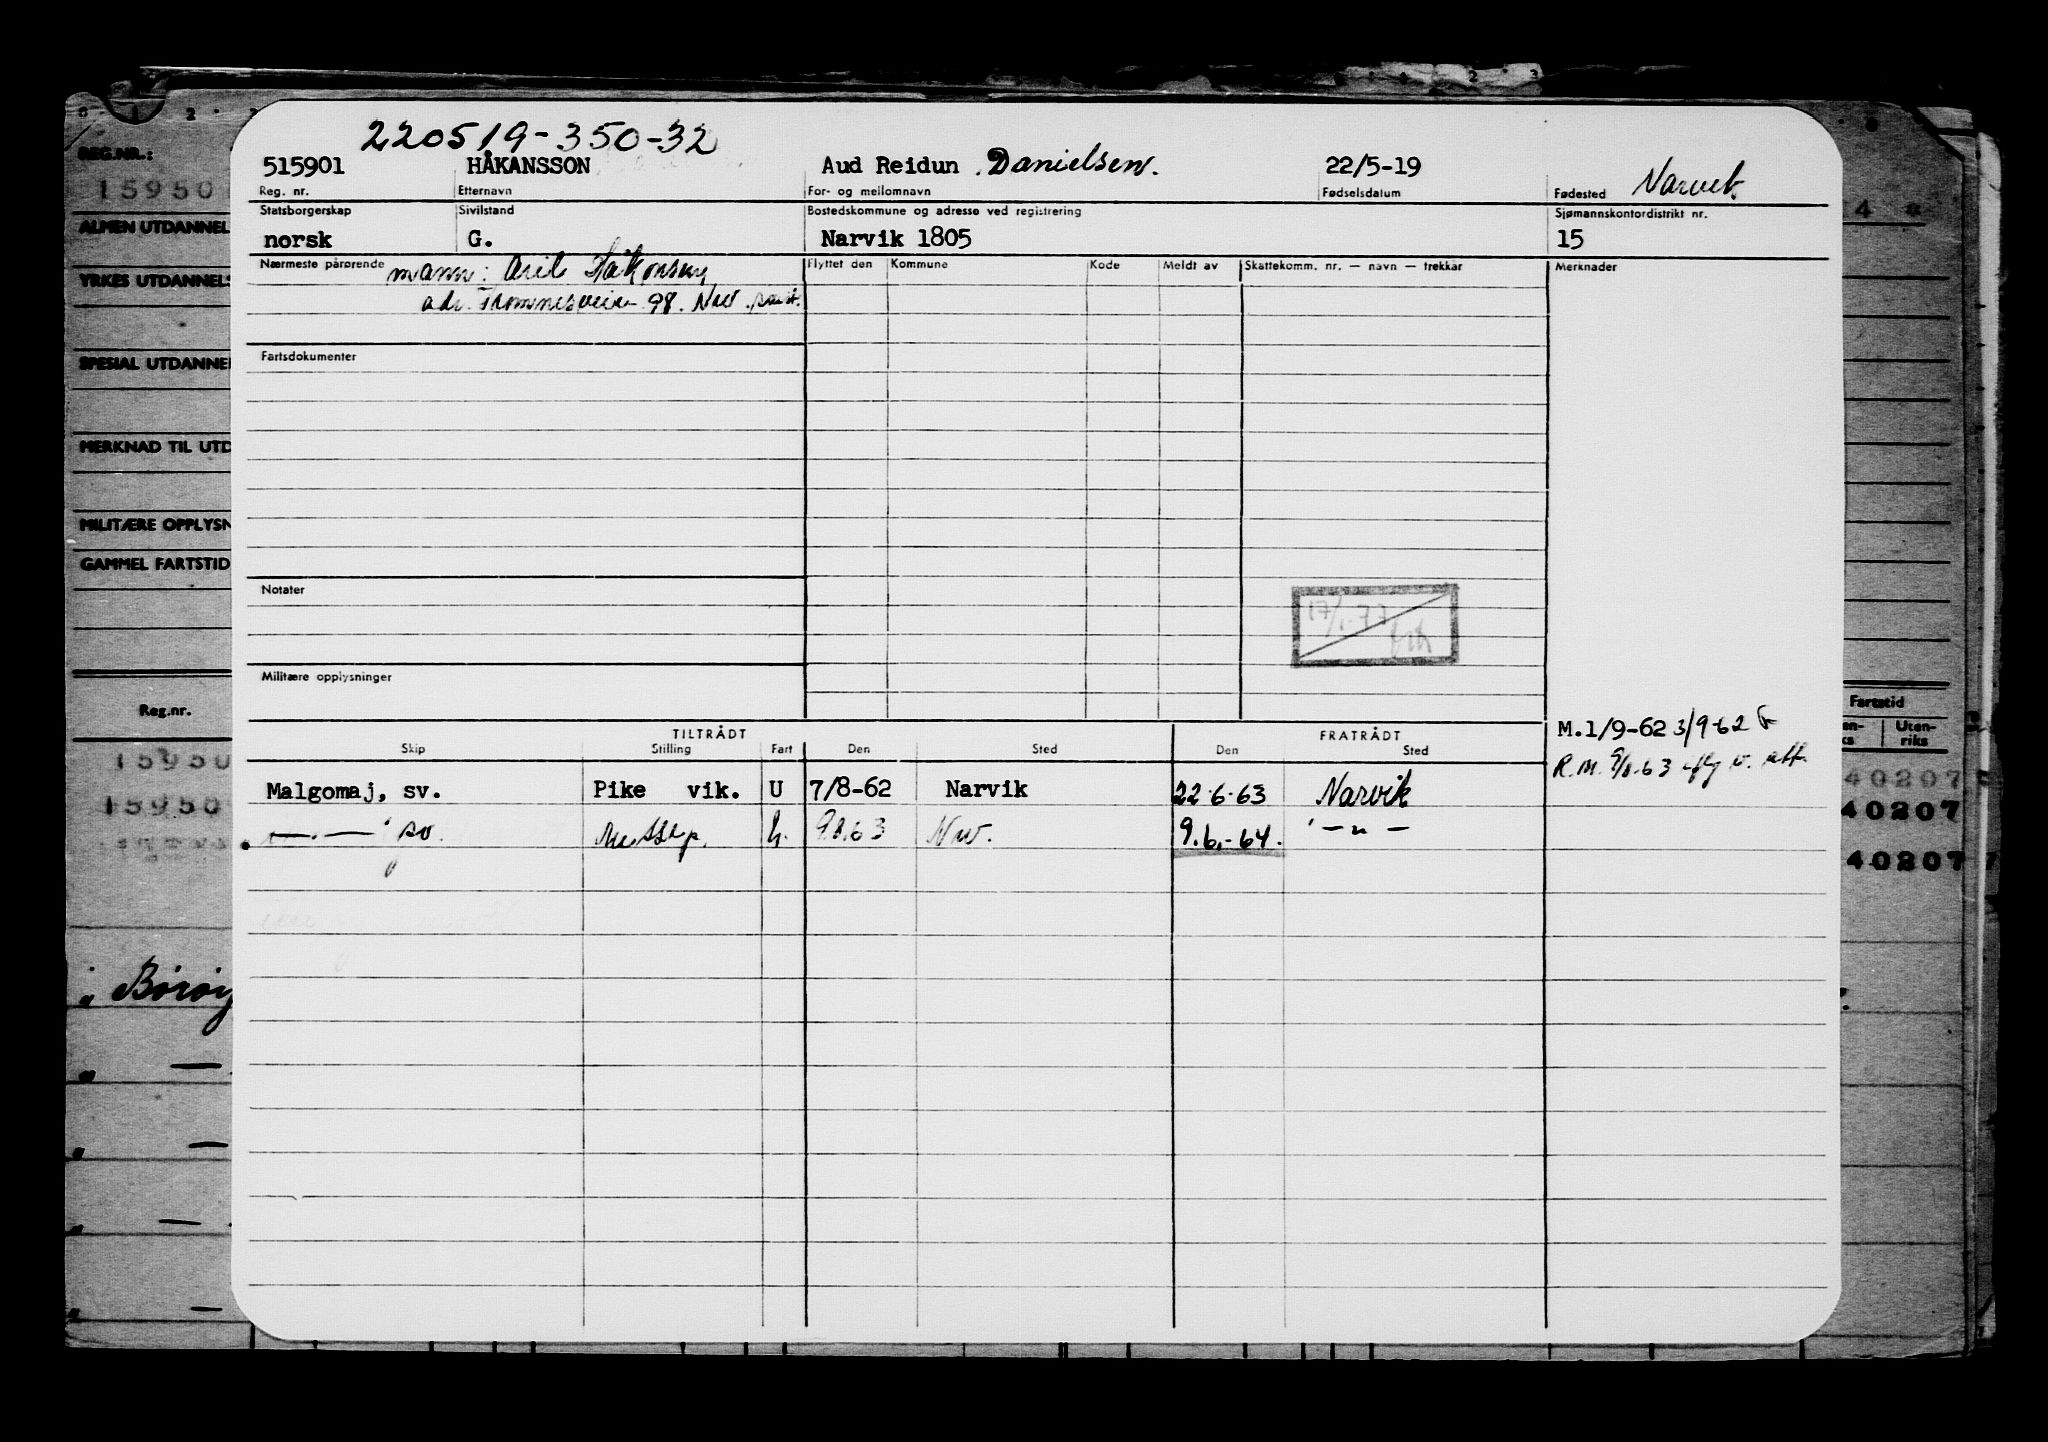 220519-350-32
515901 HÅKANSSON Aud Reidun Danielsen. 22/5-19 Narvik
Reg. nr. Etternavn For- og mellomnavn Fødselsdatum Fødested
Statsborgerskap Sivilstand Bostedskommune og adresse ved registrering Sjømannskontordistrikt nr.
norsk G. Narvik 1805 15
Nærmeste pårørende mann: Flyttet den Kommune Kode Meldt av Skattekomm. nr. — navn — trekkår Merknader
adr. 98. Nw.
Fartsdokumenter
Notater
Militære opplysninger
M.1/9-62 3/9-62
TILTRÅDT FRATRÅDT
Skip Stilling Fart Den Sted Den Sted
R.M.
Malgomaj, sv. Pike vik. U 7/8-62 Narvik 22.6.63 Narvik
— . — Nw. 9.6.-64. — " —
REG.NR.:
15950
ALMEN UTDANNEL
YRKES UTDANNELS
SPESIAL UTDANNEL
MERKNAD TIL UTD
MILITÆRE OPPLYSN
GAMMEL FARTSTID
Reg.nr.
15950
15950
Fartstid
en- Uten-
ks riks
40207
40207
40207